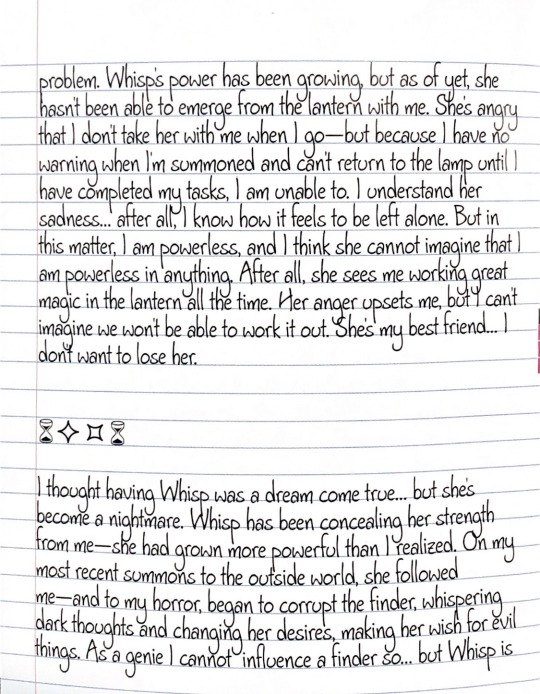 problem. Whisp's power has been growing, but as of yet, she
hasn't been able to emerge from the lantern with me. She's angry
that I don't take her with me when I go—but because I have no
warning when I'm summoned and can't return to the lamp until I
have completed my tasks, I am unable to. I understand her
sadness... after all, I know how it feels to be left alone. But in
this matter, I am powerless, and I think she cannot imagine that I
am powerless in anything. After all, she sees me working great
magic in the lantern all the time. Her anger upsets me, but I can't
imagine we won't be able to work it out. She's my best friend... I
don't want to lose her.
I thought having Whisp was a dream come true... but she's
become a nightmare. Whisp has been concealing her strength
from me—she had grown more powerful than I realized. On my
most recent summons to the outside world, she followed
me—and to my horror, began to corrupt the finder, whispering
dark thoughts and changing her desires, making her wish for evil
things. As a genie I cannot influence a finder so... but Whisp is